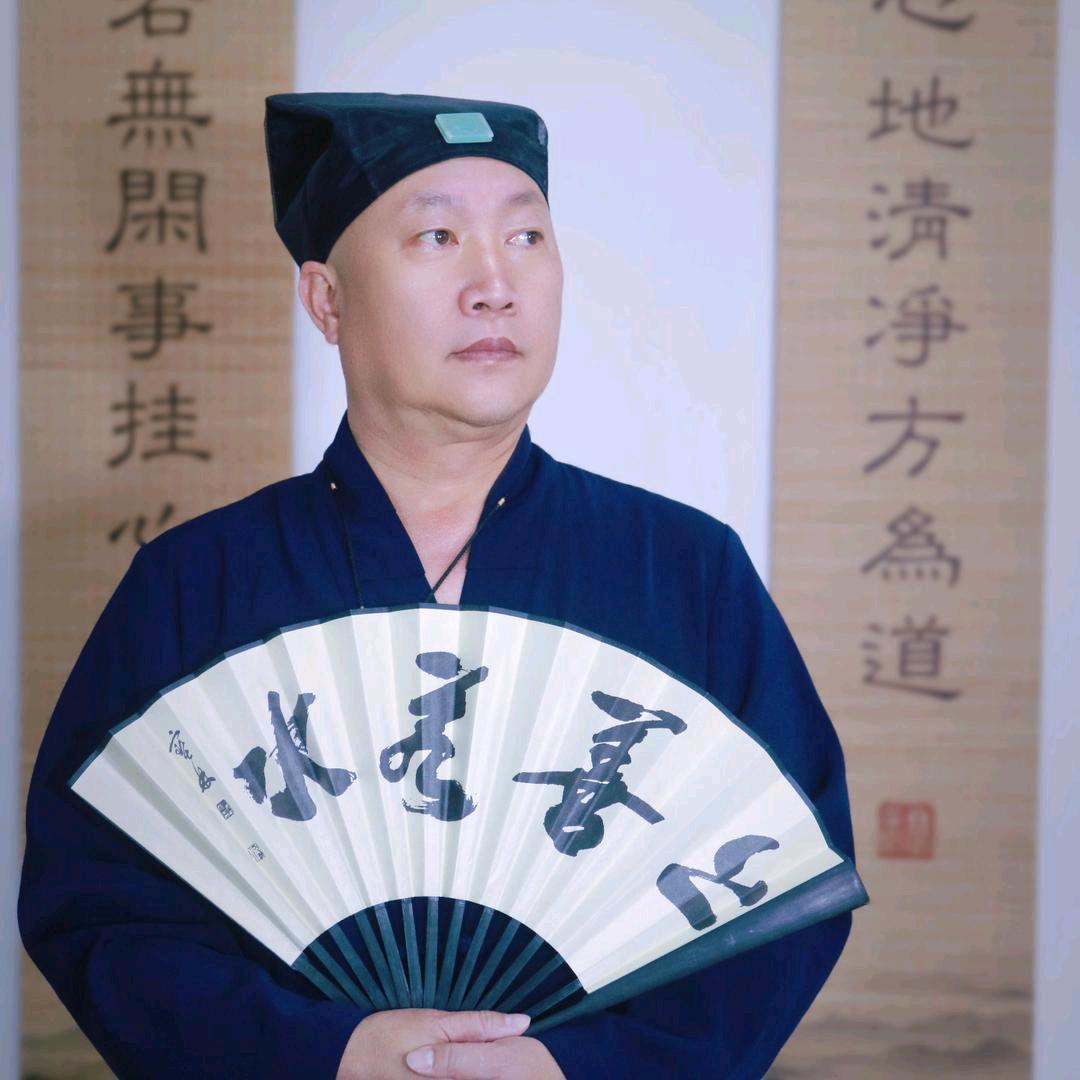 心地清淨方為道
若無閑事挂心
上善若水